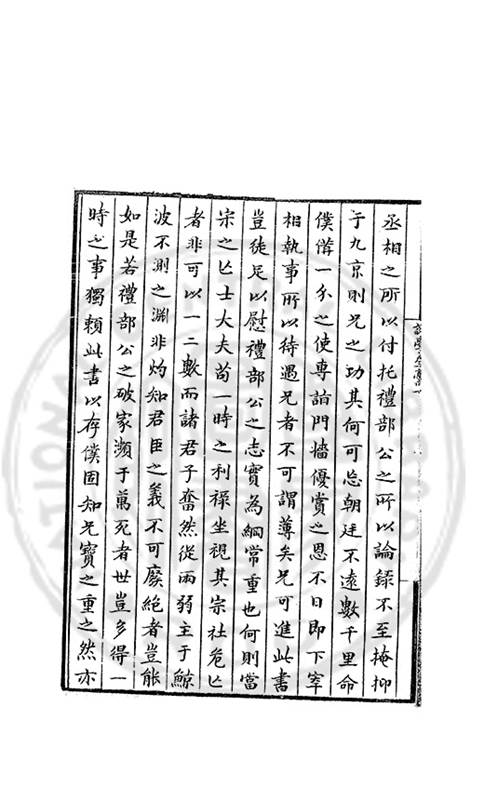 丞相之所以付托禮部公之所以論錄不至掩抑
于九京則兄之功其何可忘朝廷不遠數千里命
僕偕一介之使專詣門墻優賞之恩不日即下宰
相執事所以待遇兄者不可謂薄矣兄可進此書
豈徒足以慰禮部公之志實為綱常重也何則當
宋之亡士大夫茍一時之利祿坐視其宗社危亡
者非可以一二數而諸君子奮然從兩弱主于鯨
波不測之淵非灼知君臣之義不可廢絕者豈能
如是若禮部公之破家瀕于萬死者世豈多得一
時之事獨賴此書以存僕固知兄寶之重之然亦